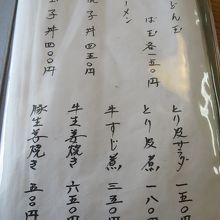 どん玉
ば玉各一五〇円
ーメン
子丼 四五〇円
子丼 四〇〇円
とり皮サラダ 一五〇円
とり皮煮 一八〇円
牛すじ煮 三五〇円
牛生姜焼き 六五〇円
豚生姜焼き 五〇円